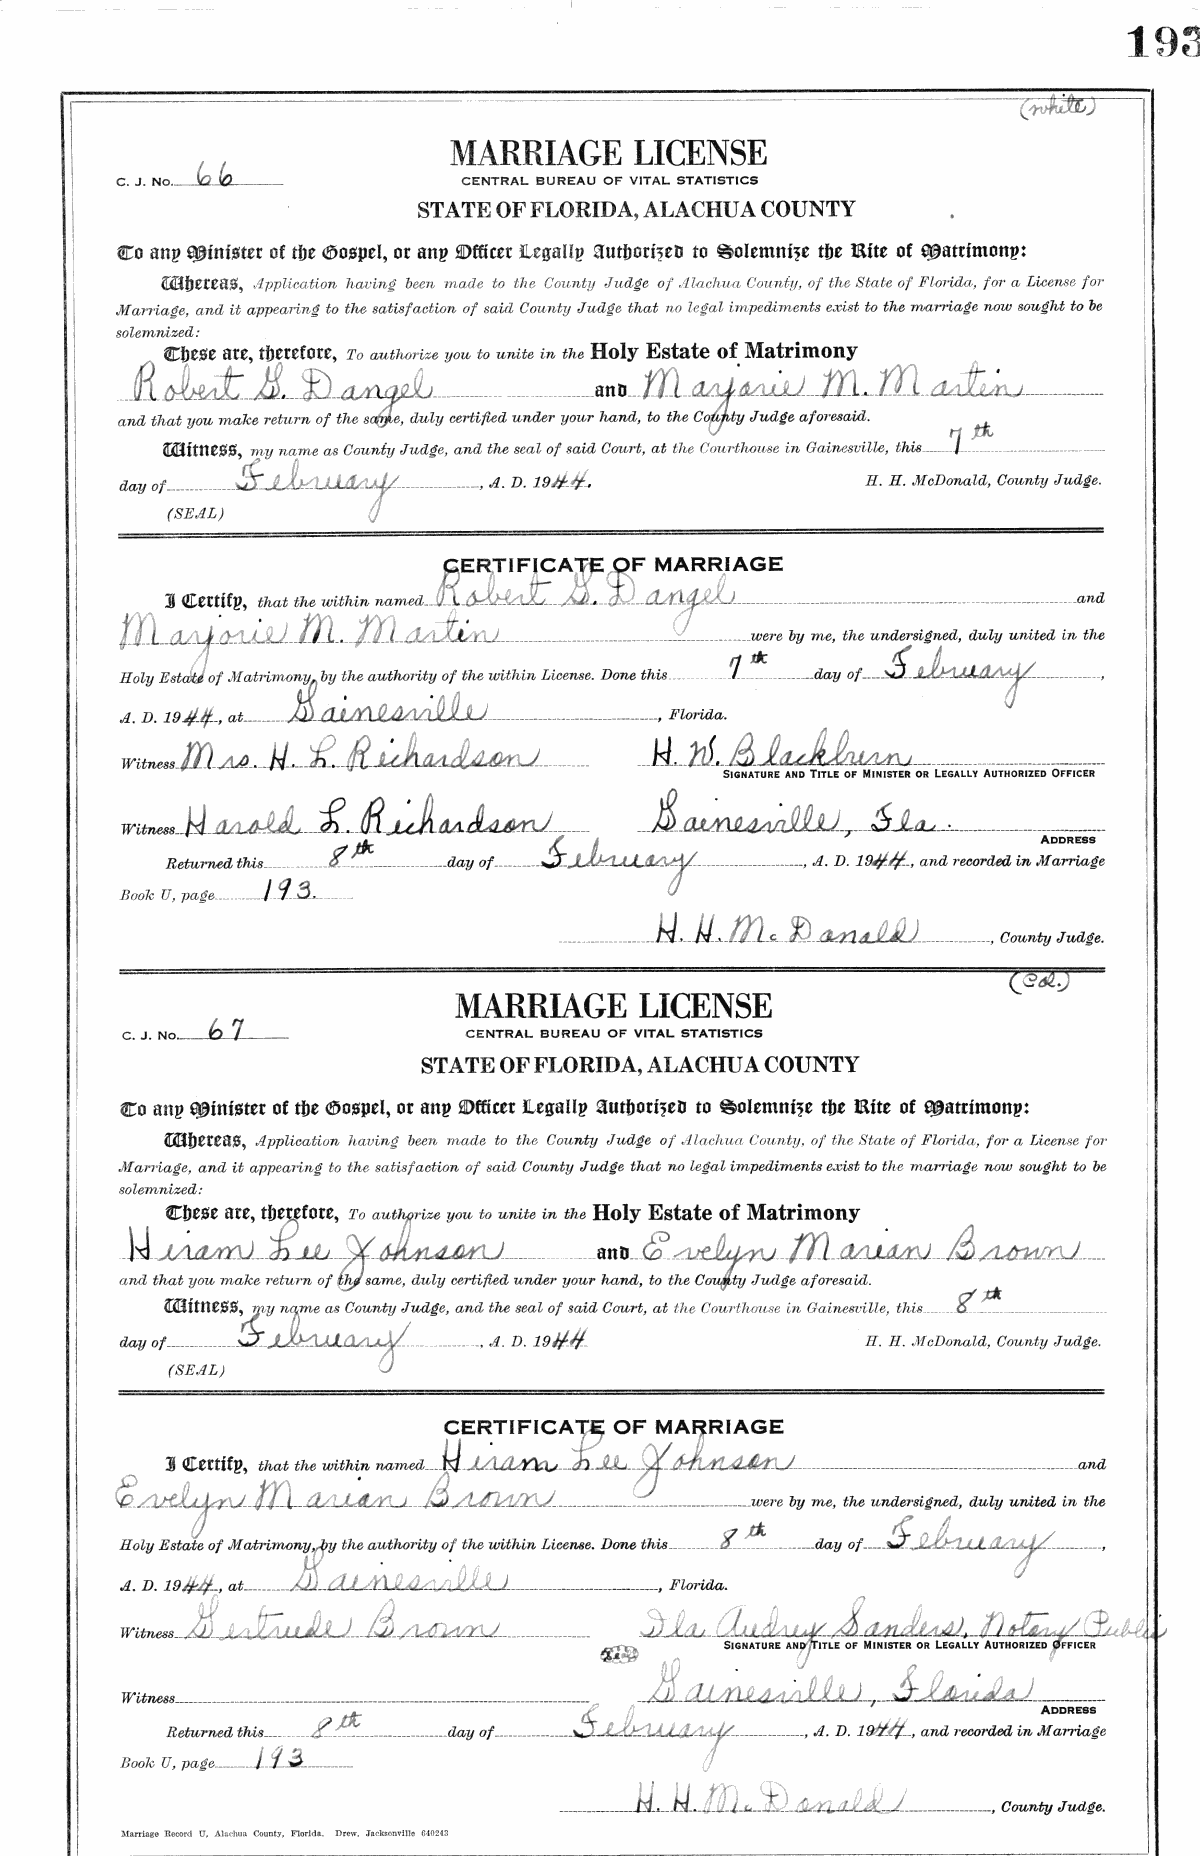 193
(white)
MARRIAGE LICENSE
C. J. No. 66
CENTRAL BUREAU OF VITAL STATISTICS
STATE OF FLORIDA, ALACHUA COUNTY
To any Minister of the Gospel, or any Officer Legally Authorized to Solemnize the Rite of Matrimony:
Whereas, Application having been made to the County Judge of Alachua County, of the State of Florida, for a License for
Marriage, and it appearing to the satisfaction of said County Judge that no legal impediments exist to the marriage now sought to be
solemnized:
These are, therefore, To authorize you to unite in the Holy Estate of Matrimony
Robert G. Dangel and Marjorie M. Martin
and that you make return of the same, duly certified under your hand, to the County Judge aforesaid.
Witness, my name as County Judge, and the seal of said Court, at the Courthouse in Gainesville, this 7th
day of February, A. D. 1944. H. H. McDonald, County Judge.
(SEAL)
CERTIFICATE OF MARRIAGE
I Certify, that the within named Robert G. Dangel and
Marjorie M. Martin were by me, the undersigned, duly united in the
Holy Estate of Matrimony, by the authority of the within License. Done this 7th day of February,
A. D. 1944, at Gainesville, Florida.
Witness Mrs. H. L. Richardson H. W. Blackburn
SIGNATURE AND TITLE OF MINISTER OR LEGALLY AUTHORIZED OFFICER
Witness Harold L. Richardson Gainesville, Fla.
ADDRESS
Returned this 8th day of February, A. D. 1944, and recorded in Marriage
Book U, page 193.
H. H. McDonald, County Judge.
(Col.)
MARRIAGE LICENSE
C. J. No. 67
CENTRAL BUREAU OF VITAL STATISTICS
STATE OF FLORIDA, ALACHUA COUNTY
To any Minister of the Gospel, or any Officer Legally Authorized to Solemnize the Rite of Matrimony:
Whereas, Application having been made to the County Judge of Alachua County, of the State of Florida, for a License for
Marriage, and it appearing to the satisfaction of said County Judge that no legal impediments exist to the marriage now sought to be
solemnized:
These are, therefore, To authorize you to unite in the Holy Estate of Matrimony
Hiram Lee Johnson and Evelyn Marian Brown
and that you make return of the same, duly certified under your hand, to the County Judge aforesaid.
Witness, my name as County Judge, and the seal of said Court, at the Courthouse in Gainesville, this 8th
day of February, A. D. 1944 H. H. McDonald, County Judge.
(SEAL)
CERTIFICATE OF MARRIAGE
I Certify, that the within named Hiram Lee Johnson and
Evelyn Marian Brown were by me, the undersigned, duly united in the
Holy Estate of Matrimony, by the authority of the within License. Done this 8th day of February,
A. D. 1944, at Gainesville, Florida.
Witness Gertrude Brown Ila Audrey Sanders, Notary Public
SIGNATURE AND TITLE OF MINISTER OR LEGALLY AUTHORIZED OFFICER
Witness Gainesville, Florida
ADDRESS
Returned this 8th day of February, A. D. 1944, and recorded in Marriage
Book U, page 193
H. H. McDonald, County Judge.
Marriage Record U, Alachua County, Florida. Drew, Jacksonville 640243